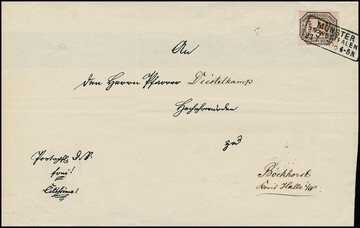 MÜNSTER
An
den Herrn Pfarrer Diestelkamp
Hochehrwürden
zu
Bockhorst
Kreis Halle i/W
Portopfl. D. S.
frei!
Citissime!